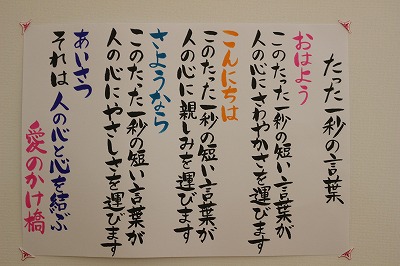 たった一秒の言葉
おはよう
このたった一秒の短い言葉が
人の心にさわやかさを運びます
こんにちは
このたった一秒の短い言葉が
人の心に親しみを運びます
さようなら
このたった一秒の短い言葉が
人の心にやさしさを運びます
あいさつ
それは人の心と心を結ぶ
愛のかけ橋